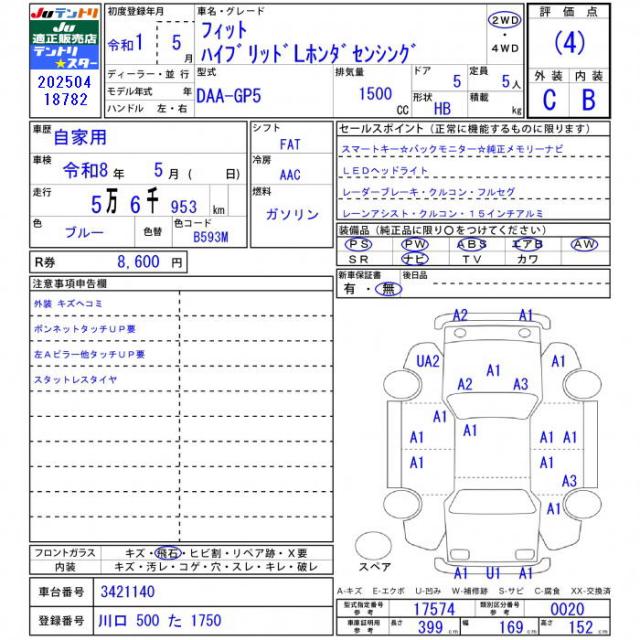 Juテントリ
JU
適正販売店
テントリ
★スター
202504
18782
初度登録年月
令和1 5 月
車名・グレード
フィット
ハイブリッドLホンダセンシング
2WD
・
4WD
評価点
(4)
外装 内装
C B
ディーラー・並行
モデル年式 年
ハンドル 左・右
型式
DAA-GP5
排気量
1500 CC
ドア
5
定員
5人
形状
HB
積載
kg
車歴
自家用
車検
令和8年 5月( 日)
走行
5万 6千 953 km
色
ブルー
色替
色コード
B593M
シフト
FAT
冷房
AAC
燃料
ガソリン
セールスポイント(正常に機能するものに限ります)
スマートキー☆バックモニター☆純正メモリーナビ
LEDヘッドライト
レーダーブレーキ・クルコン・フルセグ
レーンアシスト・クルコン・15インチアルミ
装備品(純正品に限り〇をつけてください)
PS PW ABS エアB AW
SR ナビ TV カワ
R券 8,600 円
新車保証書
有・無
後日品
注意事項申告欄
外装 キズヘコミ
ボンネットタッチUP要
左Aピラー他タッチUP要
スタットレスタイヤ
A2 A1
UA2 A1 A1
A2 A3
A1 A1
A1 A1 A1
A1 A1
A3
A1
スペア
A1 U1 A1
フロントガラス キズ・飛石・ヒビ割・リペア跡・X要
内装 キズ・汚レ・コゲ・穴・スレ・キレ・破レ
A-キズ E-エクボ U-凹み W-補修跡 S-サビ C-腐食 XX-交換済
車台番号 3421140
登録番号 川口 500 た 1750
型式指定番号 17574 類別区分番号 0020
車庫証明用参考 長さ 399 cm 幅 169 cm 高さ 152 cm